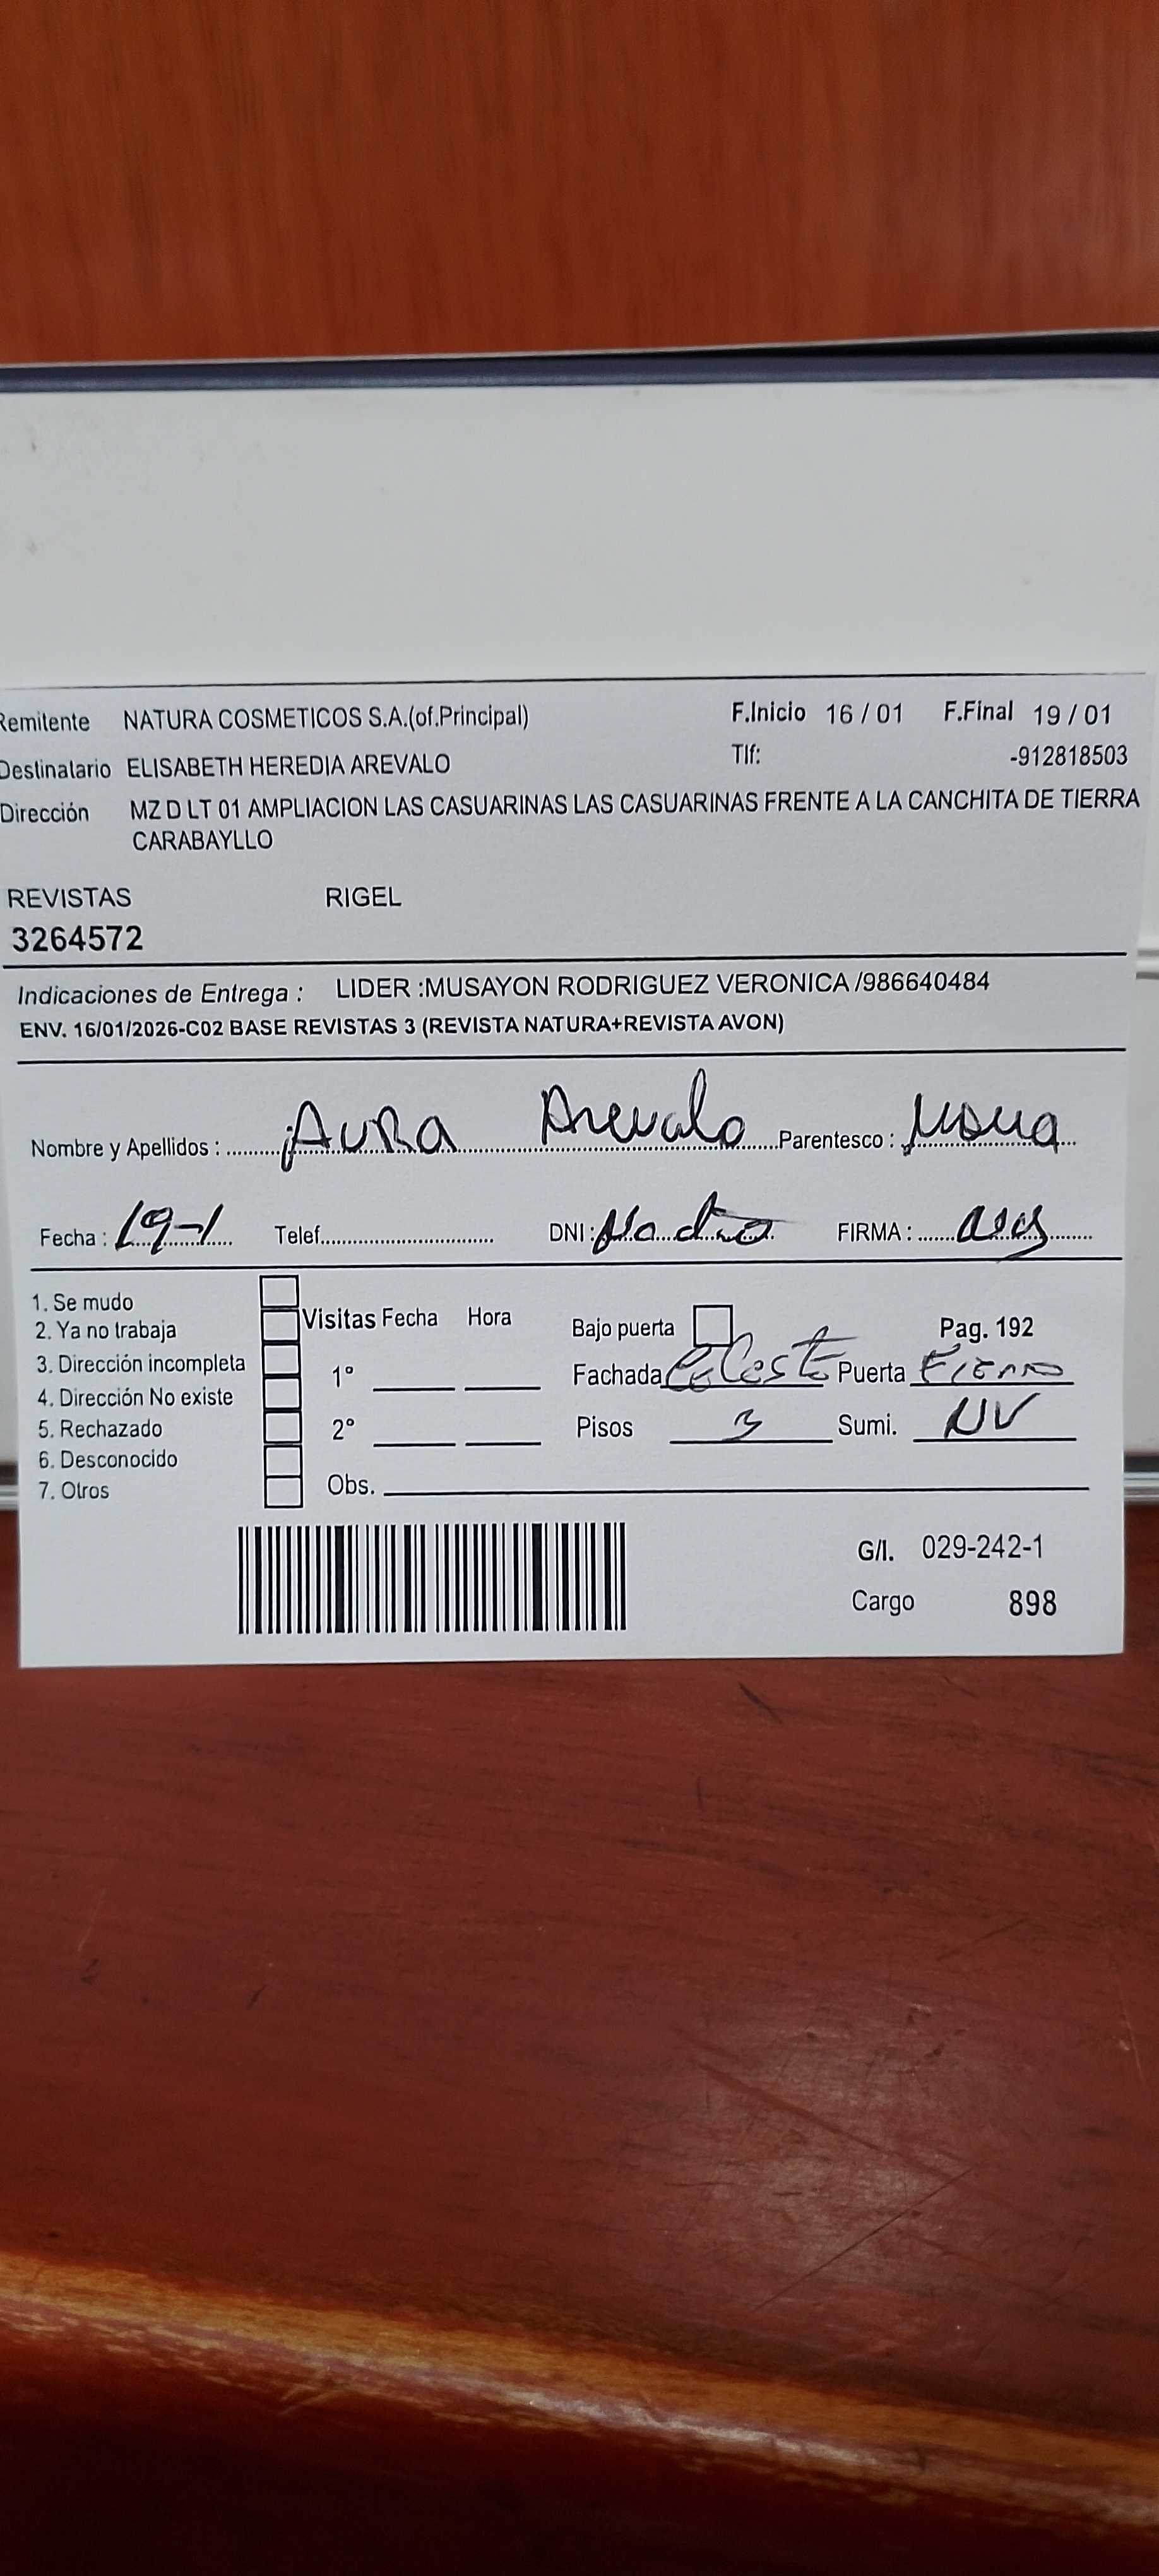 Remitente NATURA COSMETICOS S.A.(of.Principal) F.Inicio 16 / 01 F.Final 19 / 01
Destinalario ELISABETH HEREDIA AREVALO Tlf: -912818503
Dirección MZ D LT 01 AMPLIACION LAS CASUARINAS LAS CASUARINAS FRENTE A LA CANCHITA DE TIERRA
CARABAYLLO
REVISTAS RIGEL
3264572
Indicaciones de Entrega : LIDER :MUSAYON RODRIGUEZ VERONICA /986640484
ENV. 16/01/2026-C02 BASE REVISTAS 3 (REVISTA NATURA+REVISTA AVON)
Nombre y Apellidos : AURA Arevalo Parentesco :
Fecha : 19-1 Telef. DNI: FIRMA :
1. Se mudo
2. Ya no trabaja
3. Dirección incompleta
4. Dirección No existe
5. Rechazado
6. Desconocido
7. Otros
Visitas Fecha Hora
1°
2°
Obs.
Bajo puerta Pag. 192
Fachada Celeste Puerta Fierro
Pisos 3 Sumi. NV
G/l. 029-242-1
Cargo 898